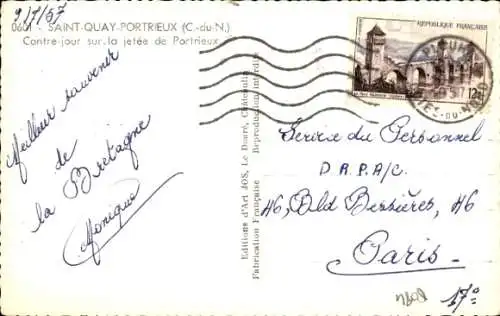 0601 - SAINT-QUAY-PORTRIEUX (C.-du-N.)
Contre-jour sur la jetée de Portrieux
Meilleur souvenir
de
la Bretagne
Monique
Editions d'Art JOS, Le Doaré, Châteaulin
Fabrication Française Reproduction interdite
REPUBLIQUE FRANÇAISE
12F
Service du Personnel
D.A.P.A/C.
46, Bld Bessières, 46
Paris.
17º